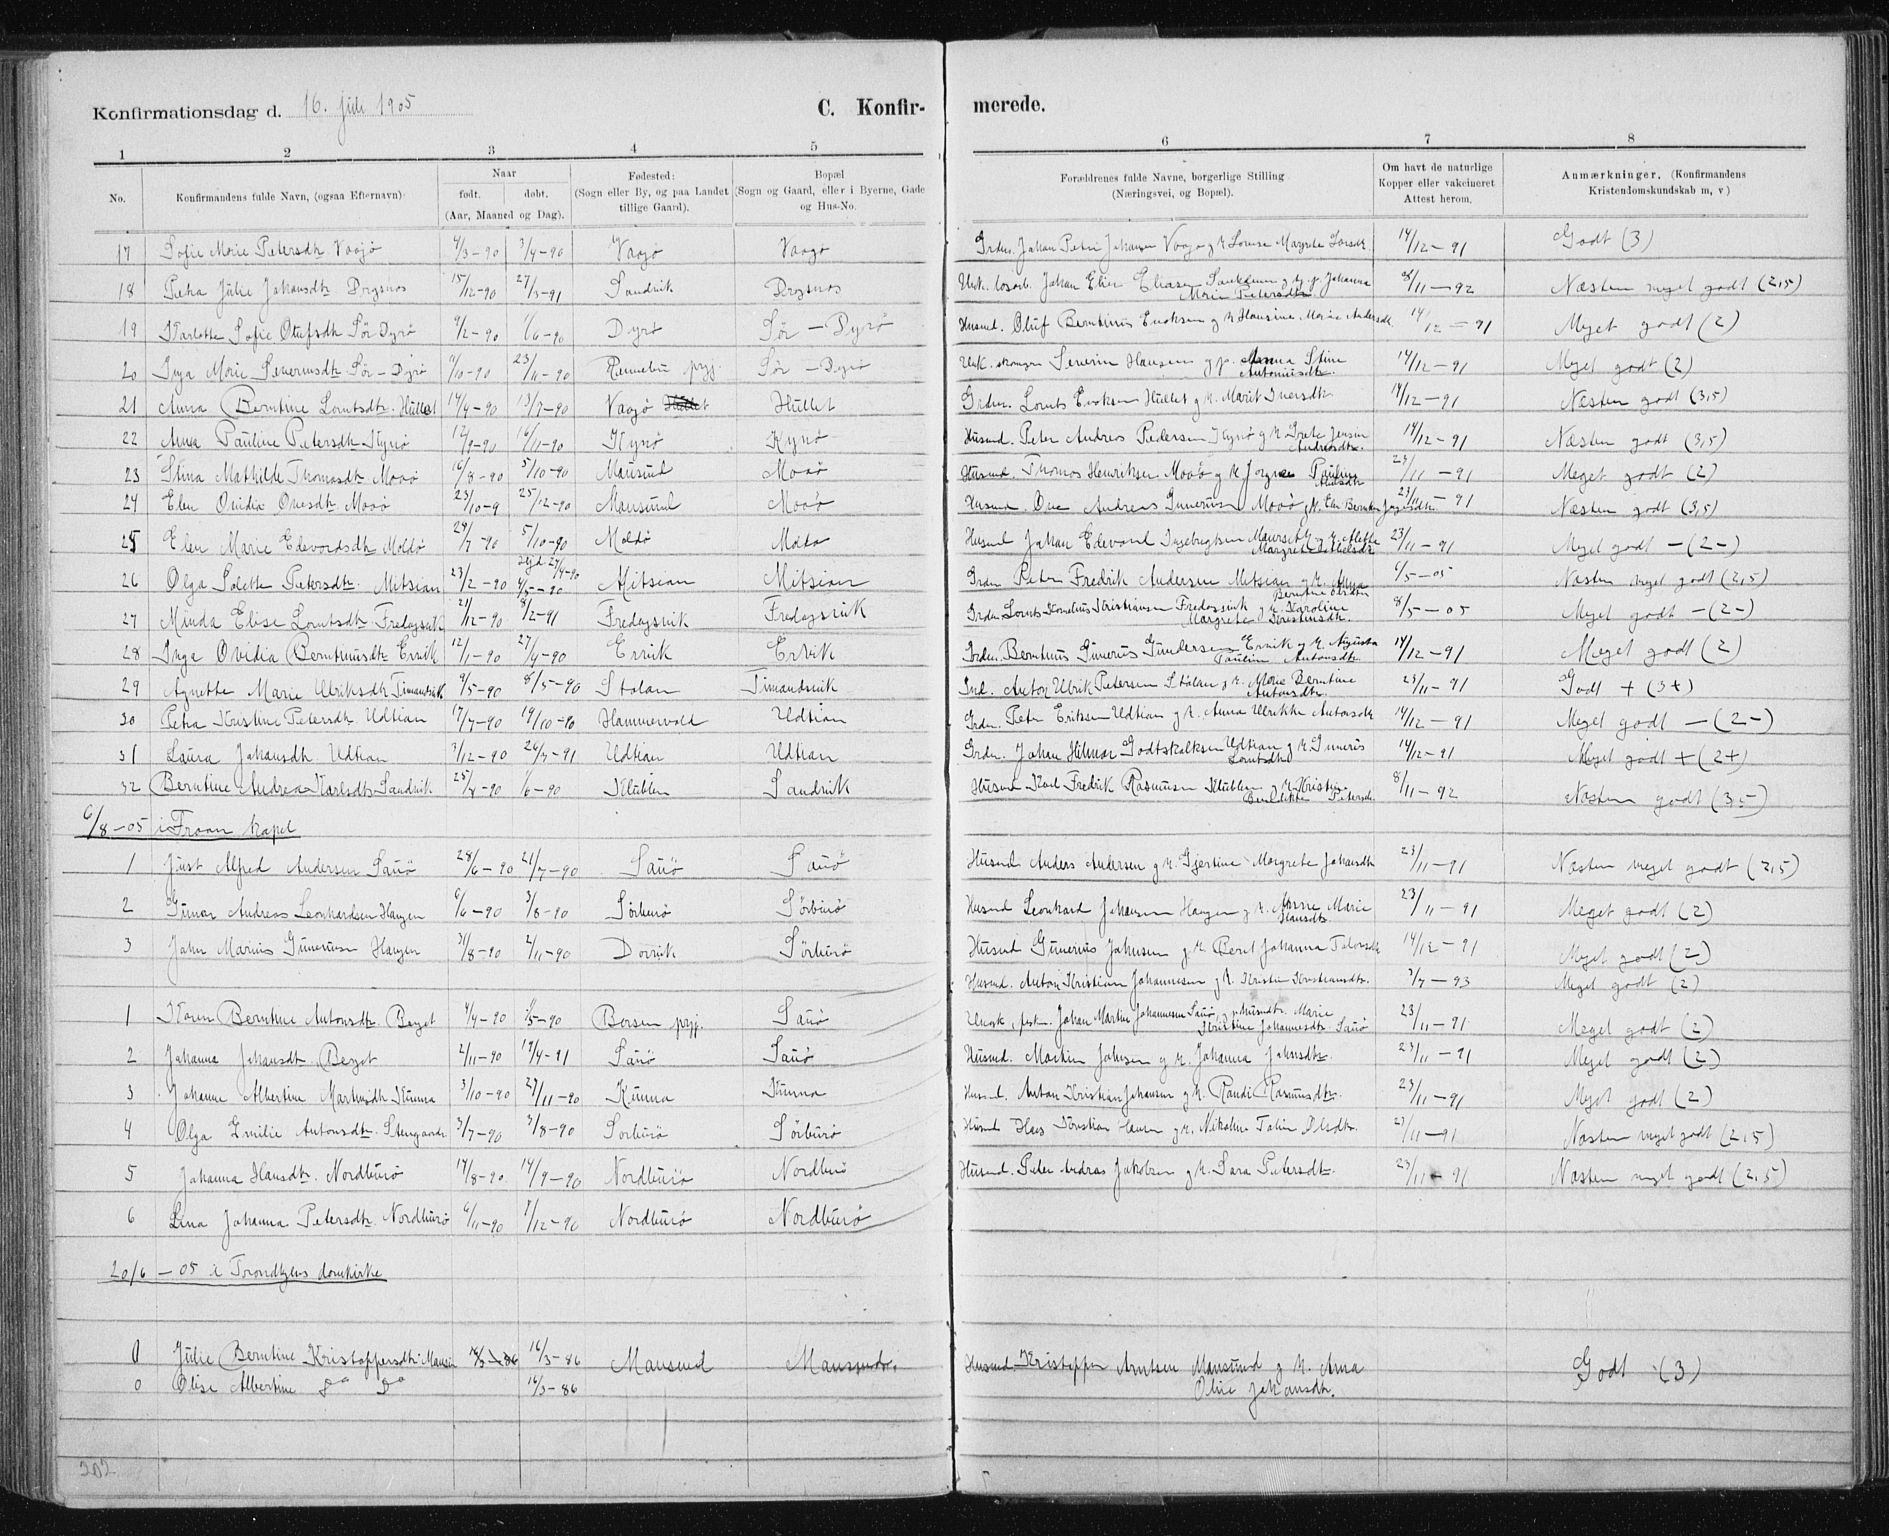 Konfirmationsdag d. 16. Juli 1905 C. Konfir-
merede.
1 2 3 4 5
6 7 8
No.
Konfirmandens fulde Navn, (ogsaa Efternavn)
Naar
født. døbt.
(Aar, Maaned og Dag).
Fødested:
(Sogn eller By, og paa Landet
tillige Gaard).
Bopæl
(Sogn og Gaard, eller i Byerne, Gade
og Hus-No.
Forældrenes fulde Navne, borgerlige Stilling
(Næringsvei, og Bopæl).
Om havt de naturlige
Kopper eller vakcineret
Attest herom.
Anmærkninger. (Konfirmandens
Kristendomskundskab m, v)
17 Sofie Marie Petersdtr Vaagø 4/3-90 3/4-90 Vaagø Vaagø Johan Petter Johansen Vaagø g K 14/12-91 Godt (3)
18 Petra Julie Johansdtr 15/12-90 27/3-91 Sandvik Johan Elier Eliasen Johanna Marie Petersdtr 92 Næsten meget godt (2,5)
19 Karlotte Sofie Olufsdtr Sør Dyrø 9/2-90 /6-90 Dyrø Sør-Dyrø Husmd. Oluf Berntinus Eriksen g K Hansine Marie Andersdtr 14/12-91 Meget godt (2)
20 Inga Marie Severinsdtr Sør-Dyrø /10-90 23/11-90 prgj. Sør-Dyrø Severin Hansen Anna Stine Antoniusdtr. 14/12-91 Meget godt (2)
21 Anna Berntine Lorntsdtr. Hullet 14/4-90 13/7-90 Vaagø Hullet Grdm. Lornts Eriksen Hullet g K. Marit Iversdtr 14/12-91 Næsten godt (3,5)
22 Anna Pauline Petersdtr Kynø 12/9-90 16/11-90 Kynø Kynø Husmd. Peter Andreas Pedersen Kynø g K Grete Jensine Andreasdtr. 14/12-91 Næsten godt (3,5)
23 Stina Mathilde Thomasdtr Moøø 16/8-90 5/10-90 Mausund Moøø Husmd. Thomas Henriksen Moøø g K Pauline 23/11-91 Meget godt (2)
24 Elen Ovidia Ovesdtr Moøø 23/10-9 25/12-90 Mausund Moøø Husmd. Ove Andreas Moøø K. 23/11-91 Næsten godt (3,5)
25 Elen Marie Edevardsdtr Moldø 29/7-90 5/10-90 Moldø Moldø Husmd Johan Edevard Ingebrigtsen g K. Margrete 23/11-91 Meget godt -(2-)
26 Olga Solette Petersdtr. Mitsian 23/2-90 4/5-90 Mitsian Mitsian Grdm Peter Fredrik Andersen Mitsian g K. Anna Berntine 6/5-05 Næsten meget godt (2,5)
27 Minda Elise Lorntsdtr Fredagsvik 21/12-90 8/2-91 Fredagsvik Fredagsvik Grdm. Lornts Kornelius Kristiansen Fredagsvik g K. Karoline Margrete Kristensdtr. 8/5-05 Meget godt -(2-)
28 Inga Ovidia Berntinusdtr Ervik 12/1-90 27/4-90 Ervik Ervik Grdm. Berntinus Gundersen Ervik g K. Augusta Pauline Antonsdtr. 14/12-91 Meget godt (2)
29 Agnette Marie Ulriksdtr Timandsvik 9/5-90 8/5-90 Stølan Timandsvik Anton Ulrik Petersen Stølan g K. Marie Berntine Antonsdtr. 23/11-91 Godt + (3+)
30 Petra Kristine Petersdtr Udtian 17/7-90 19/10-90 Hammervold Udtian Grdm. Peter Eriksen Udtian g K. Anna Ulrikke Antonsdtr 14/12-91 Meget godt -(2-)
31 Laura Johansdtr Udtian 3/12-90 91 Udtian Udtian Grdm. Johan Hilmar Godtskalksen Udtian g K Lorntsdtr 14/12-91 Meget godt + (2+)
32 Berntine Andrea Karlsdtr Sandvik 25/4-90 /6-90 Klubben Sandvik Husmd Karl Fredrik Rasmussen Klubben g K. Kristine Benedikte Petersd. 8/11-92 Næsten godt (3,5)
6/8-05 i Froan kapel
1 Just Alfred Andersen Sauø 28/6-90 21/7-90 Sauø Sauø Husmd Anders Andersen g K. Gjertine Margrete Johansdtr 23/11-91 Næsten meget godt (2,5)
2 Gunar Andreas Leonhardsen Haugen 6/6-90 3/8-90 Sørburø Sørburø Husmd Leonhard Johansen Haugen g K. Anne Marie Hansdtr. 23/11-91 Meget godt (2)
3 John Marius Haugen 31/8-90 2/11-90 Dorvik Sørburø Husmd Gunerius Johnsen g K Beret Johanna 14/12-91 Meget godt (2)
Husmd. Anton Kristian Johannesen g K. Kristine Kristiansdtr. /7-93 Meget godt (2)
1 Karen Berntine Antonsdtr. Berget 4/4-90 /5-90 prgj. Sauø Johan Martin Johannesen Sauø Marie Kristine Johannesdtr. Sauø 23/11-91 Meget godt (2)
2 Johanna Johansdtr. Berget 2/11-90 19/4-91 Sauø Sauø Husmd. Martin Johnsen g K. Johanna Johnsdtr. 23/11-91 Meget godt (2)
3 Johanne Albertine Martinsdtr Kunna 3/10-90 23/11-90 Kunna Kunna Husmd. Anton Kristian Johansen g K. Randi Rasmusdtr. 23/11-91 Meget godt (2)
4 Olga Emilie Antonsdtr. 3/7-90 3/8-90 Sørburø Sørburø Husmd Hans Kristian Hansen g K. Nikoline 23/11-91 Næsten meget godt (2,5)
5 Johanna Hansdtr. Nordburø 14/8-90 14/9-90 Nordburø Nordburø Husmd. Peter Andreas Jakobsen g K. Sara Petersdtr. 23/11-91 Næsten meget godt (2,5)
6 Lina Johanna Petersdtr Nordburø 6/11-90 7/12-90 Nordburø Nordburø
20/6-05 i Trondhjems domkirke
0 Julie Berntine Kristoffersdtr. 16/3-86 Mausund Mausund Husmd Kristoffer Arntsen Mausund g K. Anna Oline Johansdtr. Godt (3)
0 Elise Albertine Do Do 16/3-86
202